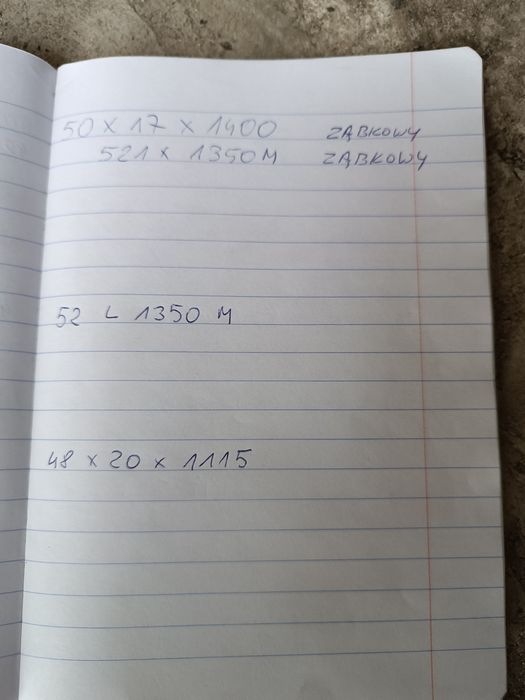 50 x 17 x 1400 ZĄBKOWY
521 x 1350 M ZĄBKOWY
52 L 1350 M
48 x 20 x 1115